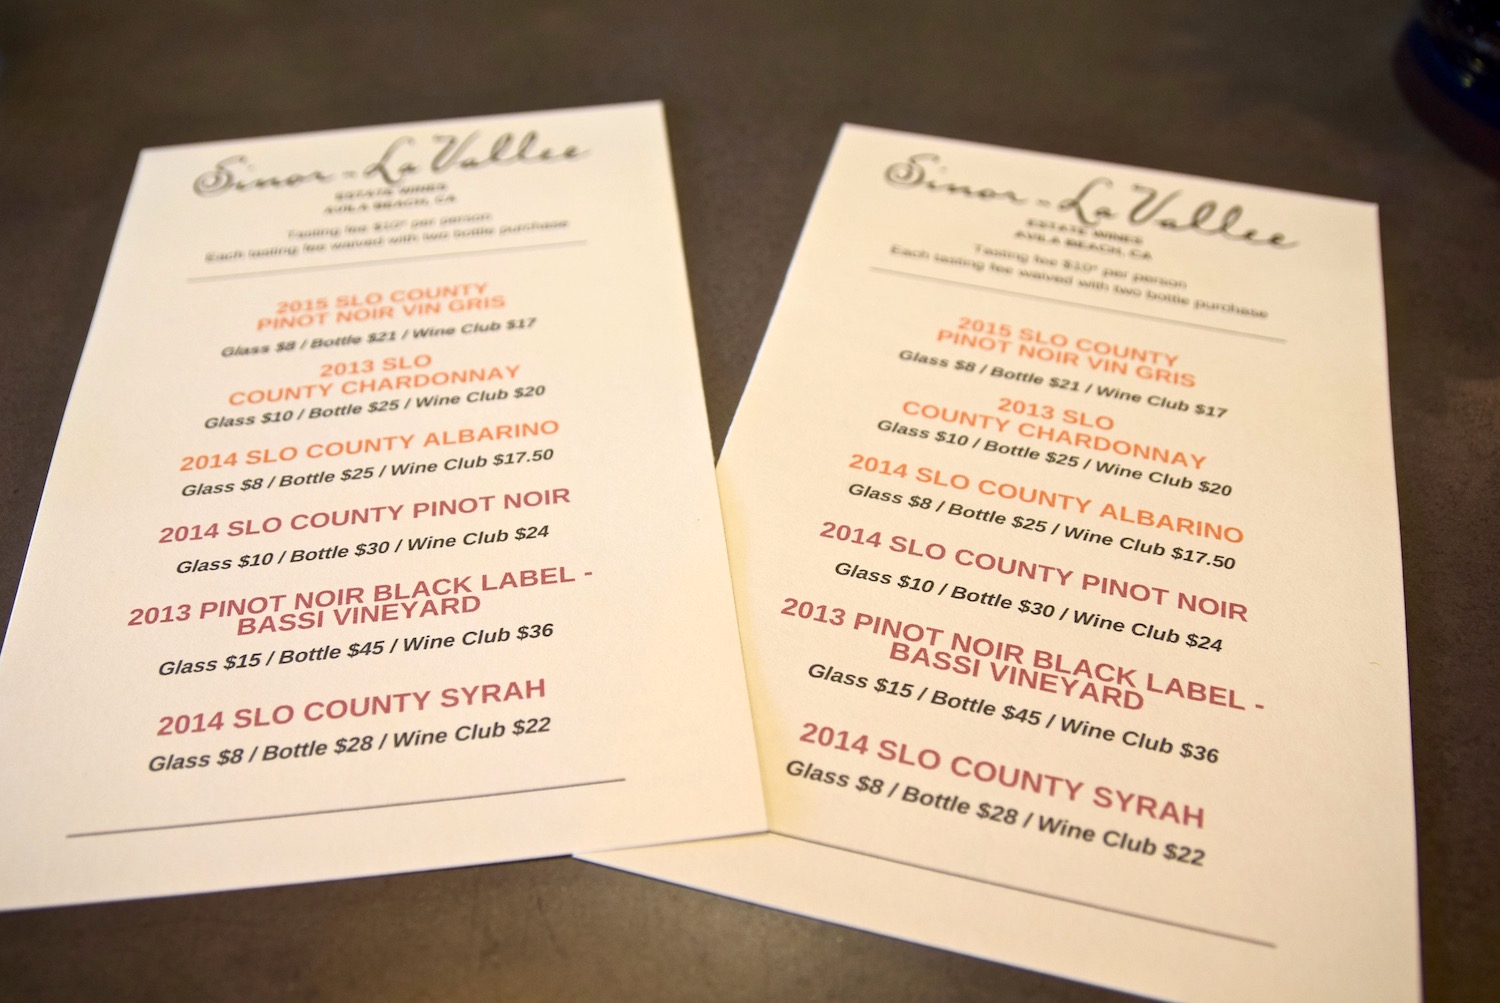 Sinor-LaVallee
ESTATE WINES
AVILA BEACH, CA
Tasting fee $10* per person
Each tasting fee waived with two bottle purchase
2015 SLO COUNTY
PINOT NOIR VIN GRIS
Glass $8 / Bottle $21 / Wine Club $17
2013 SLO
COUNTY CHARDONNAY
Glass $10 / Bottle $25 / Wine Club $20
2014 SLO COUNTY ALBARINO
Glass $8 / Bottle $25 / Wine Club $17.50
2014 SLO COUNTY PINOT NOIR
Glass $10 / Bottle $30 / Wine Club $24
2013 PINOT NOIR BLACK LABEL -
BASSI VINEYARD
Glass $15 / Bottle $45 / Wine Club $36
2014 SLO COUNTY SYRAH
Glass $8 / Bottle $28 / Wine Club $22
Sinor-LaVallee
ESTATE WINES
AVILA BEACH, CA
Tasting fee $10* per person
Each tasting fee waived with two bottle purchase
2015 SLO COUNTY
PINOT NOIR VIN GRIS
Glass $8 / Bottle $21 / Wine Club $17
2013 SLO
COUNTY CHARDONNAY
Glass $10 / Bottle $25 / Wine Club $20
2014 SLO COUNTY ALBARINO
Glass $8 / Bottle $25 / Wine Club $17.50
2014 SLO COUNTY PINOT NOIR
Glass $10 / Bottle $30 / Wine Club $24
2013 PINOT NOIR BLACK LABEL -
BASSI VINEYARD
Glass $15 / Bottle $45 / Wine Club $36
2014 SLO COUNTY SYRAH
Glass $8 / Bottle $28 / Wine Club $22